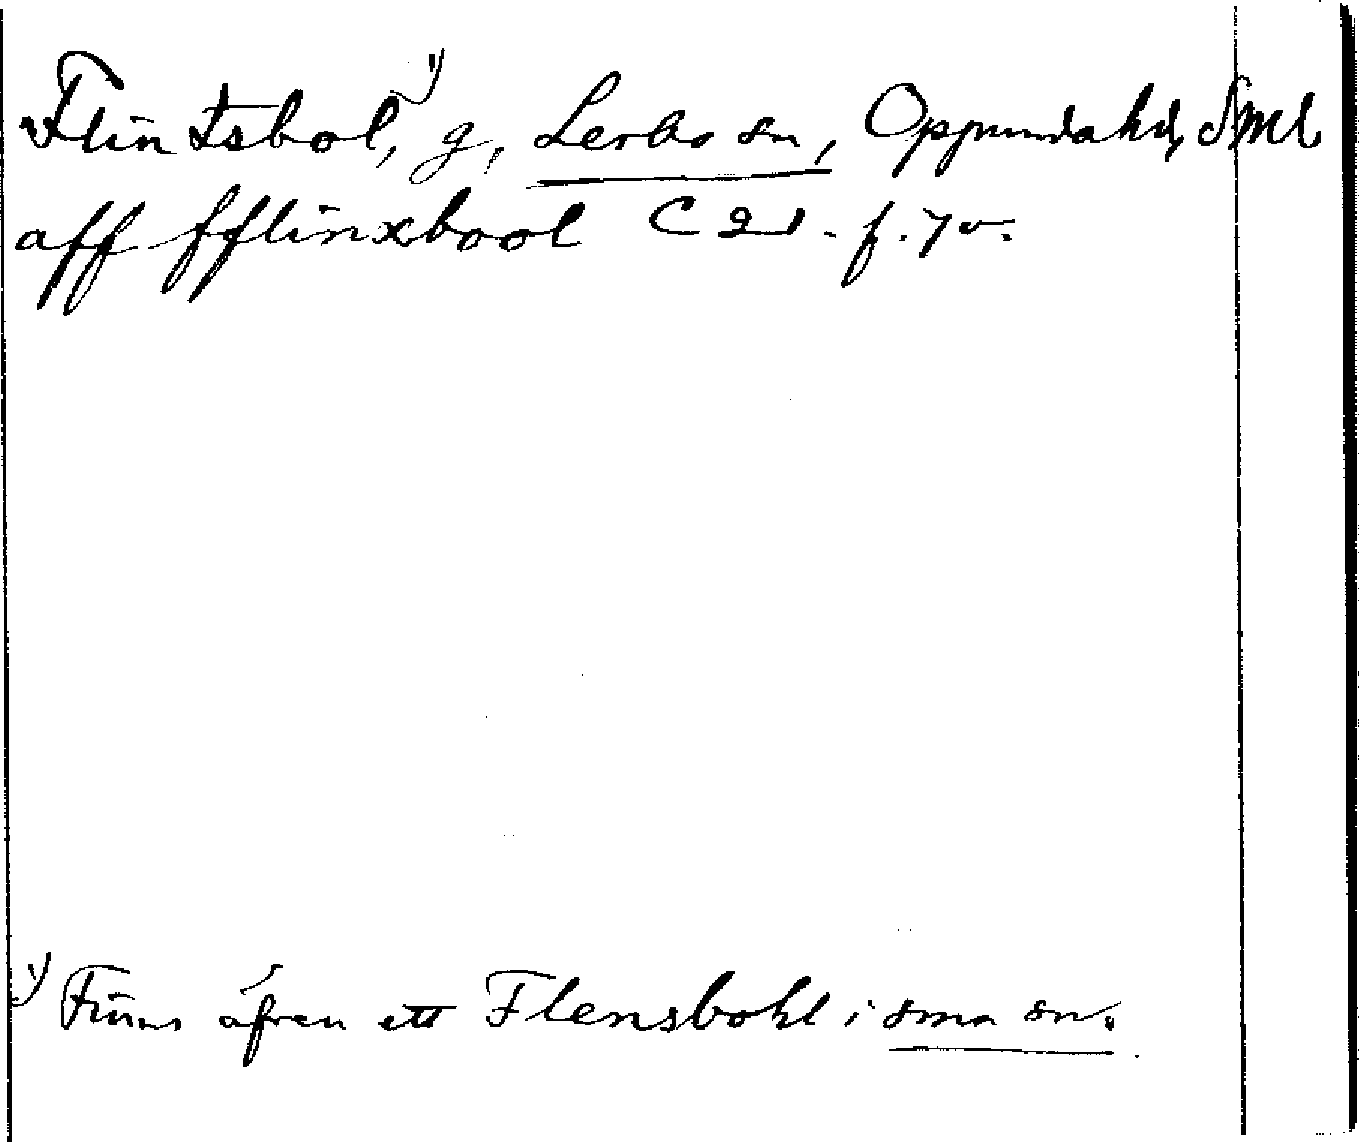 Flintsbol,¹⁾ g, Lerbo sn, Oppunda hd, Sml
aff fflinxbool C 21. f. 7 v.
¹⁾ Finns äfven ett Flensbohl i sma sn.